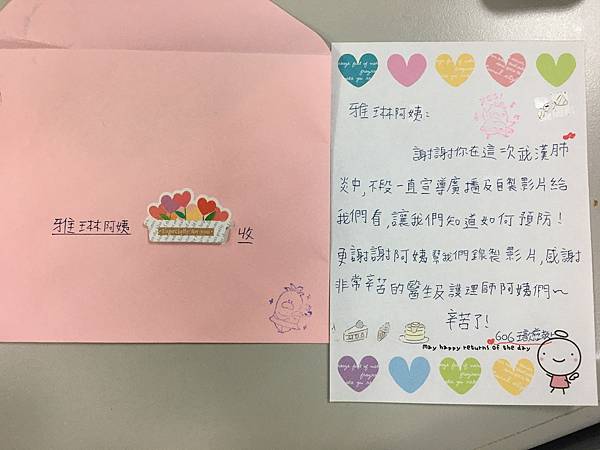 雅琳阿姨
Especially for you
收
雅琳阿姨:
謝謝你在這次武漢肺
炎中,不段一直宣導廣播及自製影片給
我們看,讓我們知道如何預防!
更謝謝阿姨幫我們錄製影片,感謝
非常辛苦的醫生及護理師阿姨們~
辛苦了!
606
may happy returns of the day